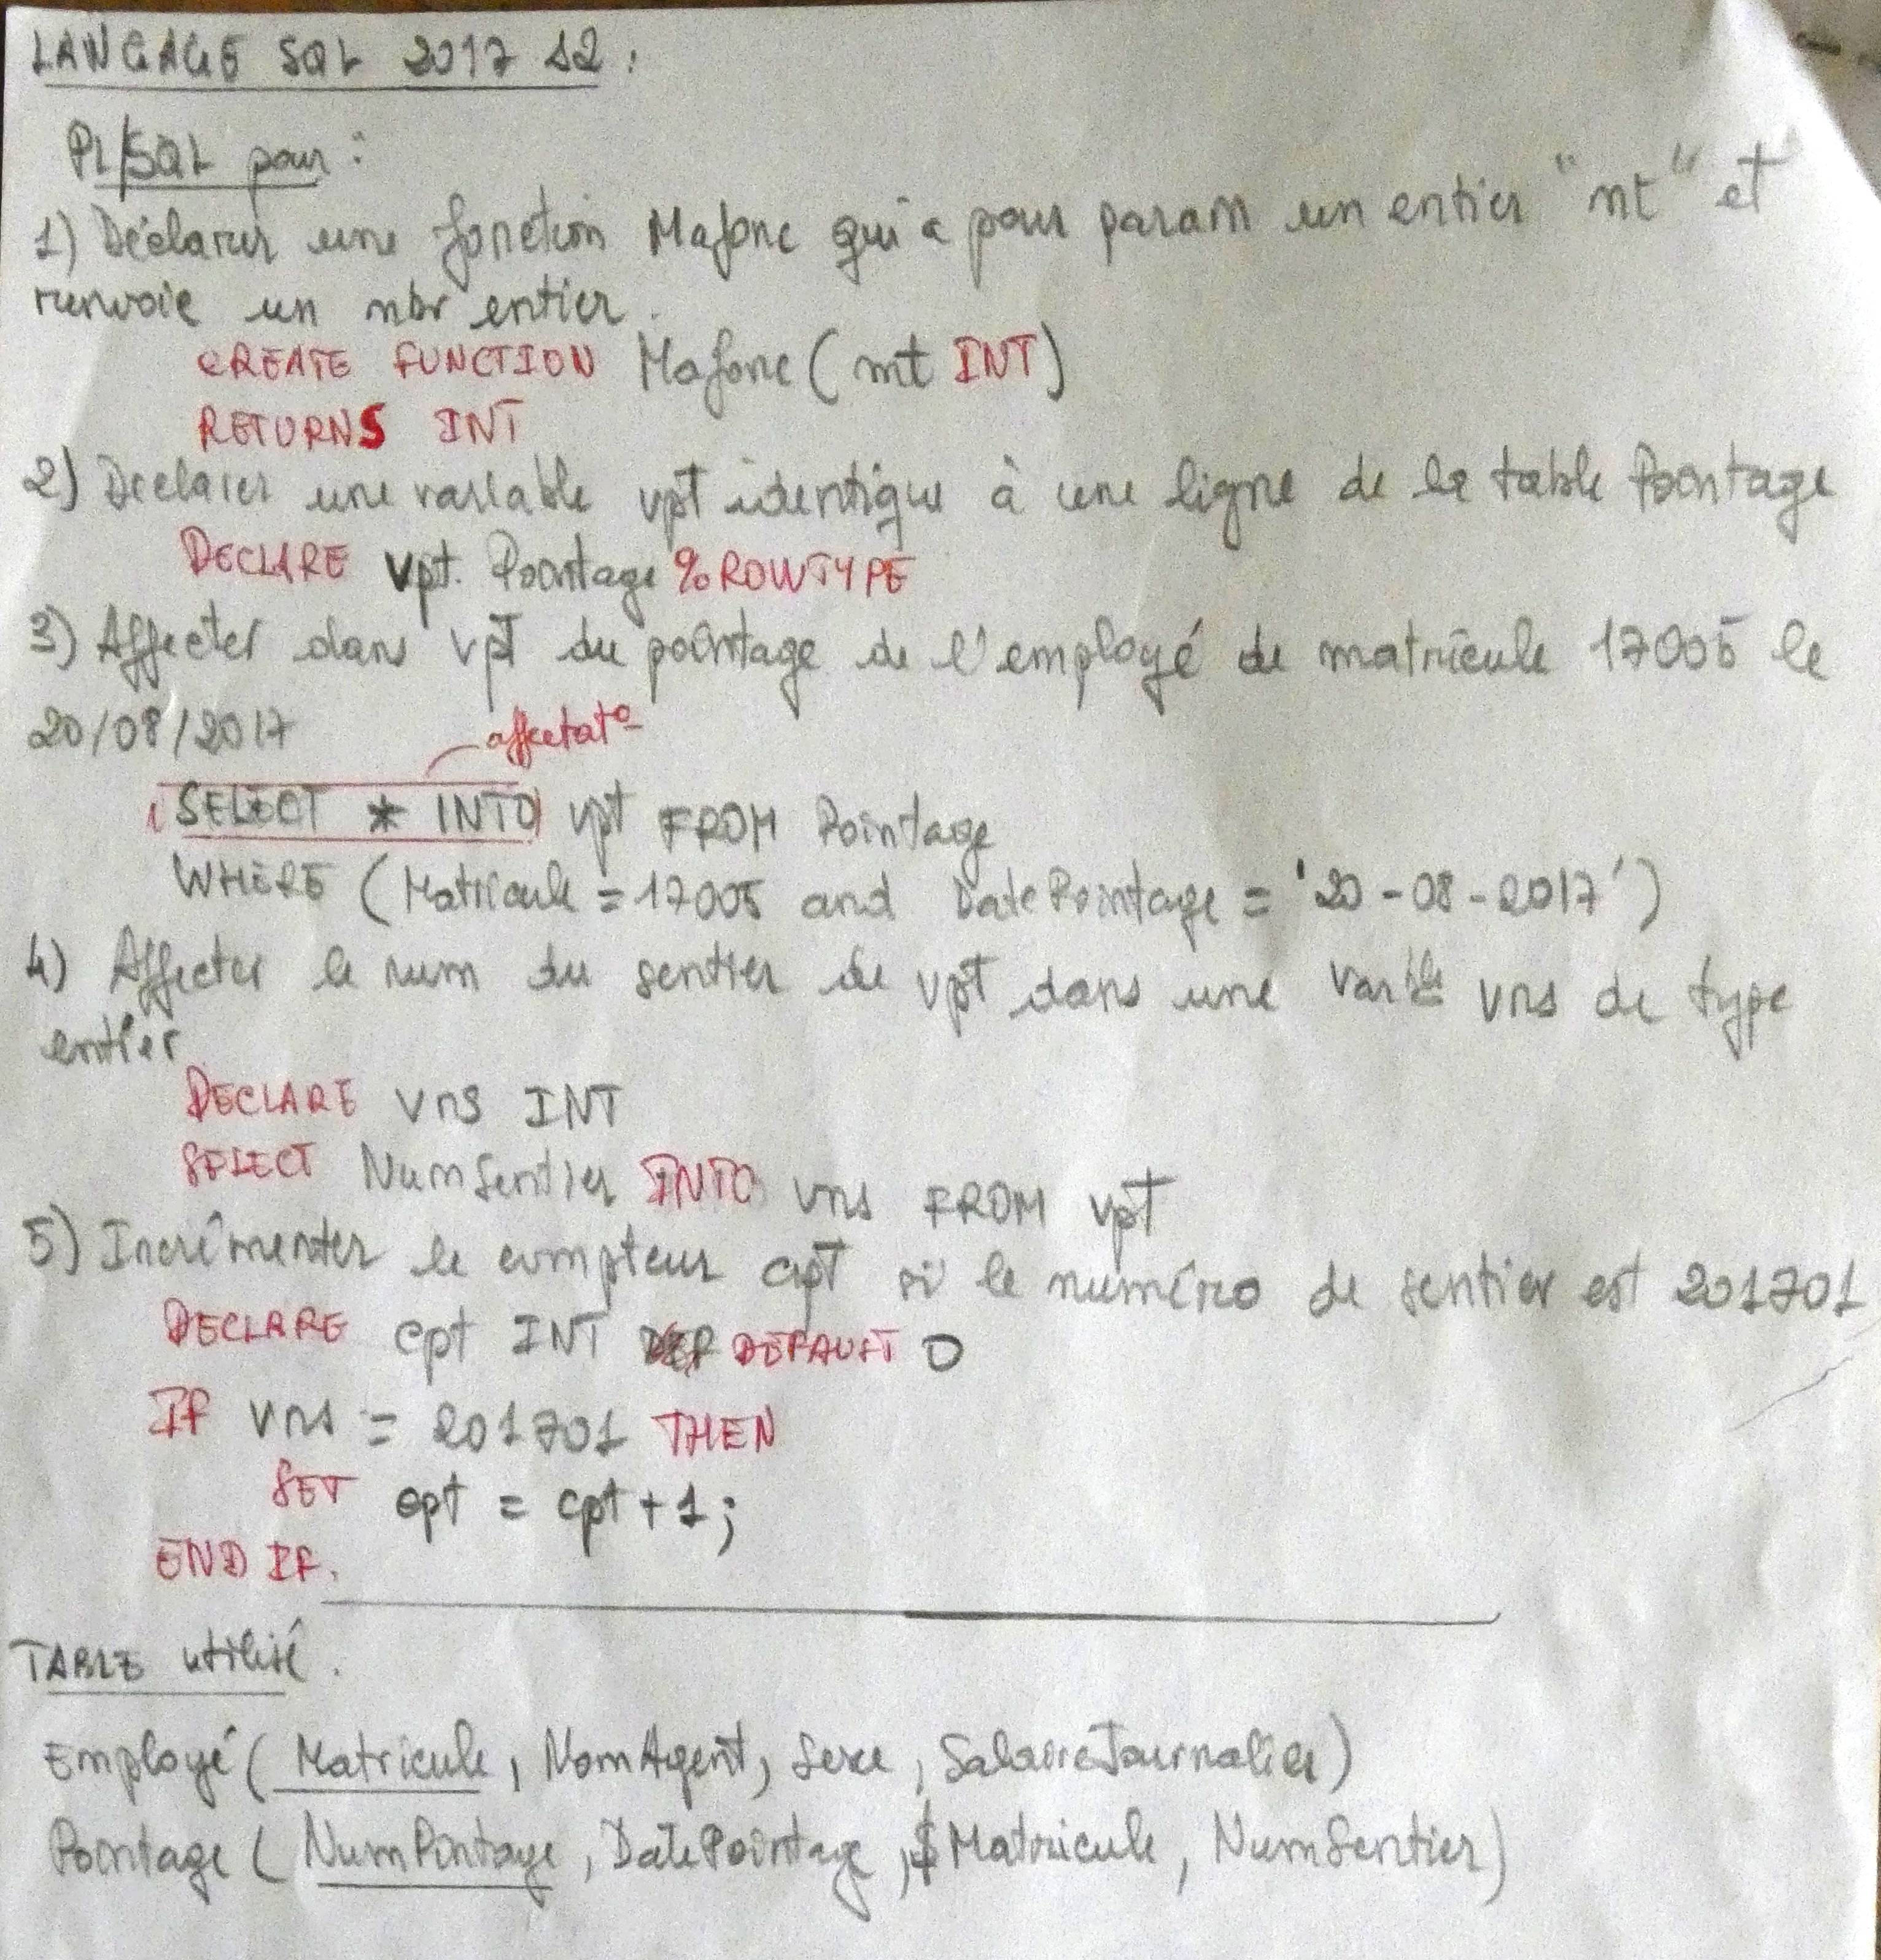 LANGAGE SQL 2017 S2 :
PL/SQL pour :
1) Déclarer une fonction Mafonc qui a pour param un entier "mt" et
renvoie un nbr entier.
CREATE FUNCTION Mafonc ( mt INT )
RETURNS INT
2) Declarer une variable vpt identique à une ligne de la table Pointage
DECLARE vpt Pointage %ROWTYPE
3) Affecter dans vpt du pointage de l'employé de matricule 17005 le
20/08/2017
affectat°
SELECT * INTO vpt FROM Pointage
WHERE ( Matricule = 17005 and DatePointage = '20-08-2017' )
4) Affecter le num du sentier de vpt dans une varble vns de type
entier
DECLARE vns INT
SELECT NumSentier INTO vns FROM vpt
5) Incrémenter le compteur cpt si le numéro de sentier est 201701
DECLARE cpt INT DEFAULT 0
IF vns = 201701 THEN
SET cpt = cpt + 1;
END IF.
TABLE utilisé.
Employé ( Matricule, NomAgent, Sexe, SalaireJournalier )
Pointage ( NumPointage, DatePointage, $Matricule, NumSentier )